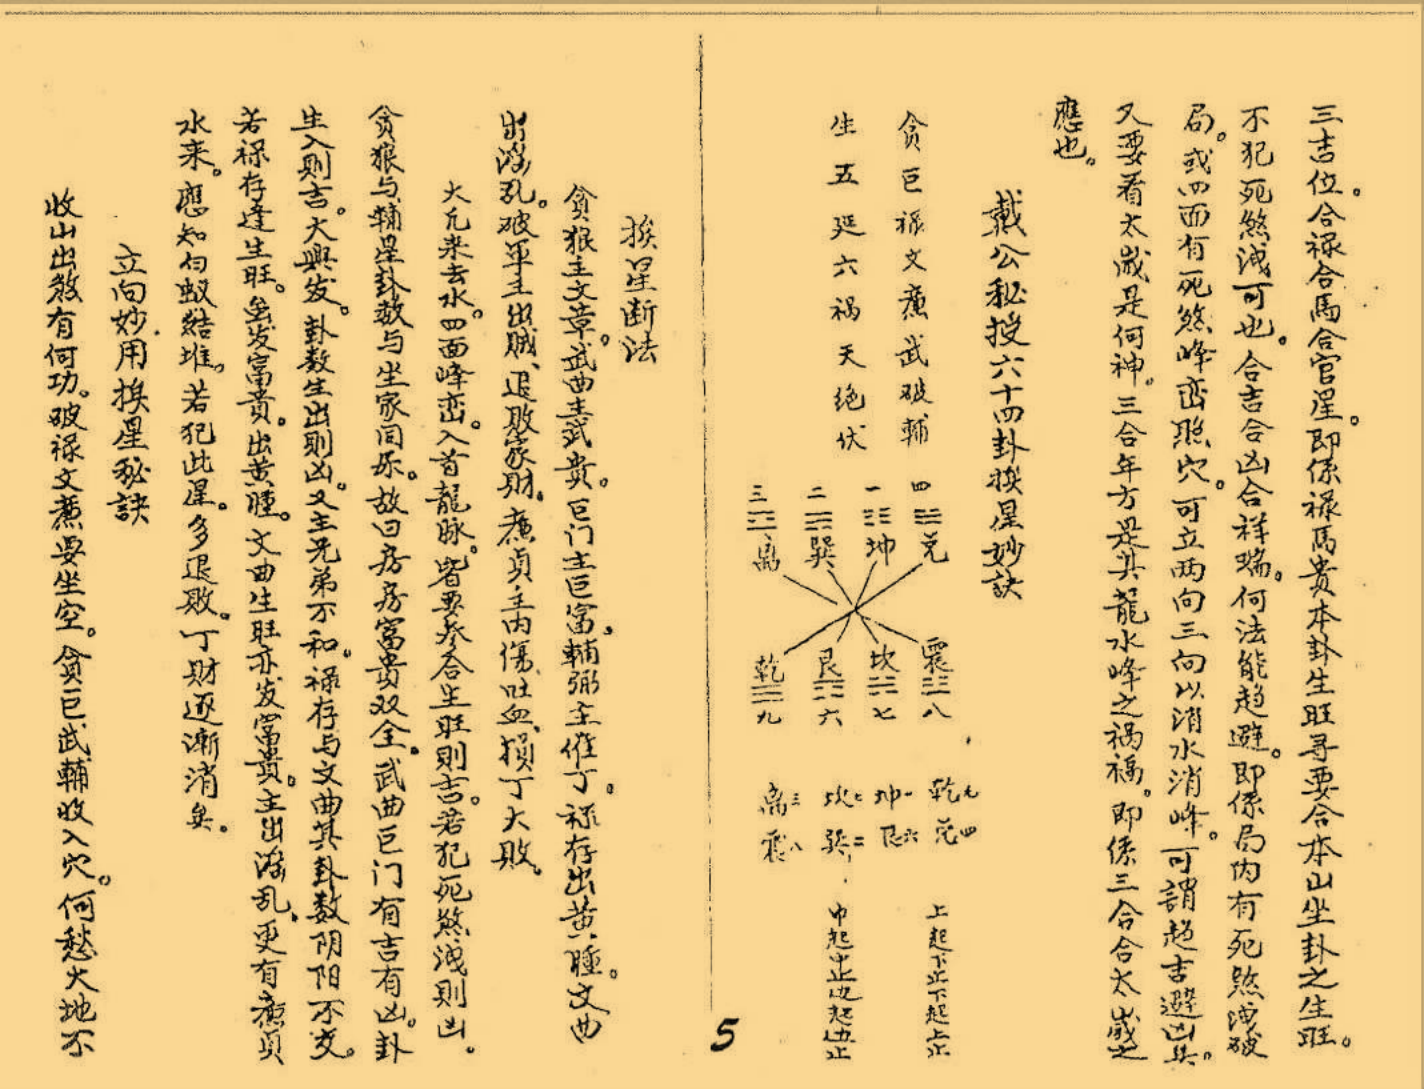 三吉位。合禄合馬合官星。即係禄馬贵本卦生旺寻要合本山坐卦之生旺。
不犯死煞浅可也。合吉合凶合祥瑞。何法能趋避。即係局内有死煞浅破
局。或四面有死煞峰峦照穴。可立两向三向以消水消峰。可謂趋吉避凶矣。
又要看太歲是何神。三合年方是其龍水峰之祸福。即係三合合太歲之
應也。
戴公秘授六十四卦挨星妙訣
贪巨禄文廉武破輔
生五延六祸天绝伏
四 一 二 三
兑 坤 巽 离
震 坎 艮 乾
八 七 六 九
乾九 坤一 坎七 离三
兑四 艮六 巽二 震八
上起下止下起上止
中起中止边起边止
5
挨星断法
贪狼主文章。武曲主武贵。巨门主巨富。輔弼主催丁。禄存出黄腫。文曲
出淫乱。破军主出贼、退败家财。廉贞主内傷、吐血、损丁大败。
大凡来去水。四面峰峦。入首龍脉。皆要参合生旺則吉。若犯死煞浅則凶。
贪狼与輔星卦数与坐家同原。故曰房房富貴双全。武曲巨门有吉有凶。卦
生入則吉。大興发。卦数生出則凶。又主兄弟不和。禄存与文曲其卦数阴阳不交。
若禄存逢生旺。虽发富貴。出黄腫。文曲生旺亦发富貴。主出淫乱。更有廉贞
水来。應知白蚁结堆。若犯此星。多退败。丁财逐漸消矣。
立向妙用挨星秘訣
收山出煞有何功。破禄文廉要坐空。贪巨武輔收入穴。何愁大地不